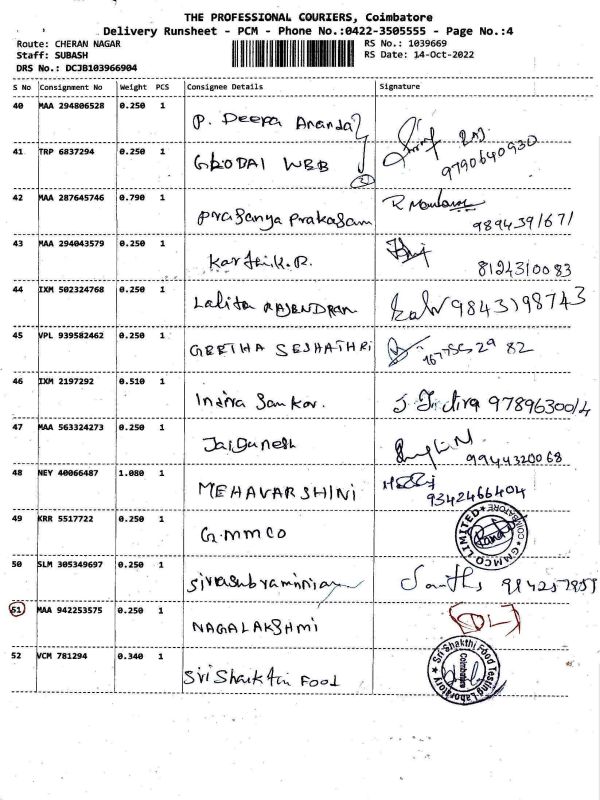 THE PROFESSIONAL COURIERS, Coimbatore
Delivery Runsheet - PCM - Phone No.:0422-3505555 - Page No.:4
Route: CHERAN NAGAR RS No.: 1039669
Staff: SUBASH RS Date: 14-Oct-2022
DRS No.: DCJB103966904
S No Consignment No Weight PCS Consignee Details Signature
40 MAA 294806528 0.250 1 P. Deepa Ananda
41 TRP 6837294 0.250 1 GLODAI WEB 9790640930
42 MAA 287645746 0.790 1 Prasanya Prakasam 9894391671
43 MAA 294043579 0.250 1 Karthik.R. 8124310083
44 IXM 502324768 0.250 1 Lalita RAJENDRAN 9843198743
45 VPL 939582462 0.250 1 GEETHA SESHATHRI
46 IXM 2197292 0.510 1 Indira Sankar. J. Indira 9789630014
47 MAA 563324273 0.250 1 Jai Danesh 9944320068
48 NEY 40066487 1.080 1 MEHAVARSHINI 9342466404
49 KRR 5517722 0.250 1 G.MMCO GMMCO LIMITED COIMBATORE
50 SLM 305349697 0.250 1 Sivasubramniam
51 MAA 942253575 0.250 1 NAGALAKSHMI (DL)
52 VCM 781294 0.340 1 Sri Shakthi FOOD Sri Shakthi Food Testing Laboratory Coimbatore